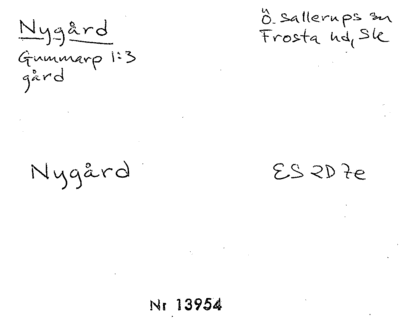 Nygård
Gummarp 1:3
gård
Ö. Sallerups sn
Frosta hd, Sk
Nygård
ES 2D 7e
Nr 13954